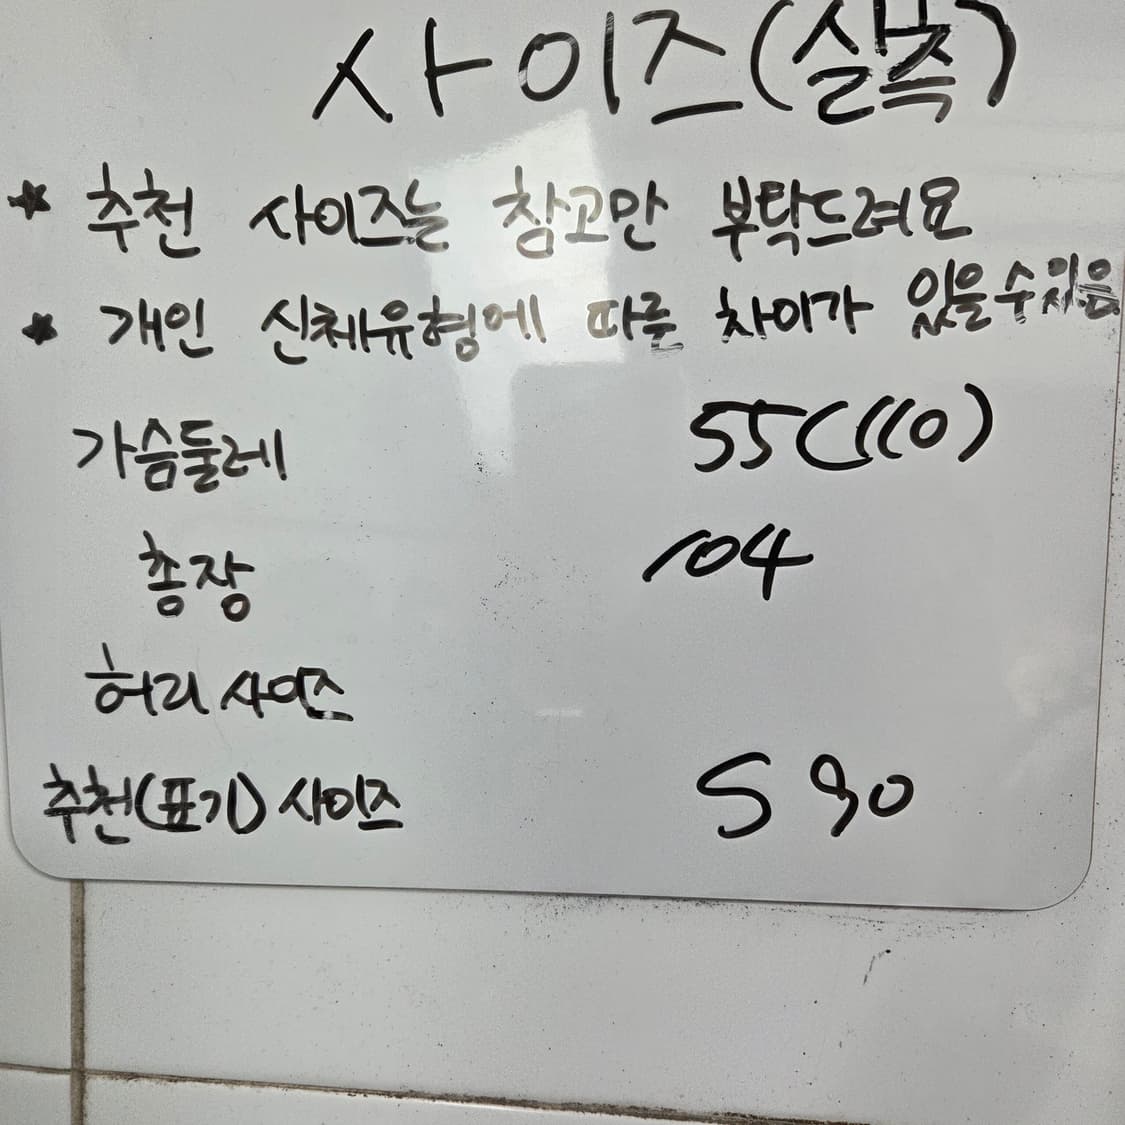 사이즈(실측)
* 추천 사이즈는 참고만 부탁드려요
* 개인 신체유형에 따른 차이가 있을수있음
가슴둘레 55(110)
총장 104
허리사이즈
추천(표기) 사이즈 S 90